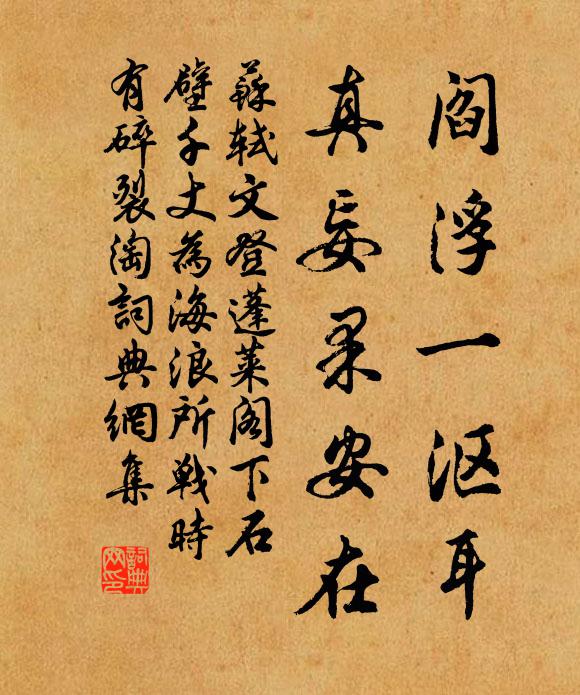 閻浮一漚耳
真妄果安在
蘇軾文登蓬萊閣下石
壁千丈為海浪所戰時
有碎裂淘詞典網集
詞典網印